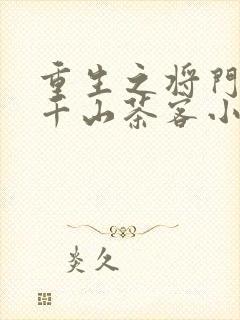 重生之将門
千山茶客小
炎久